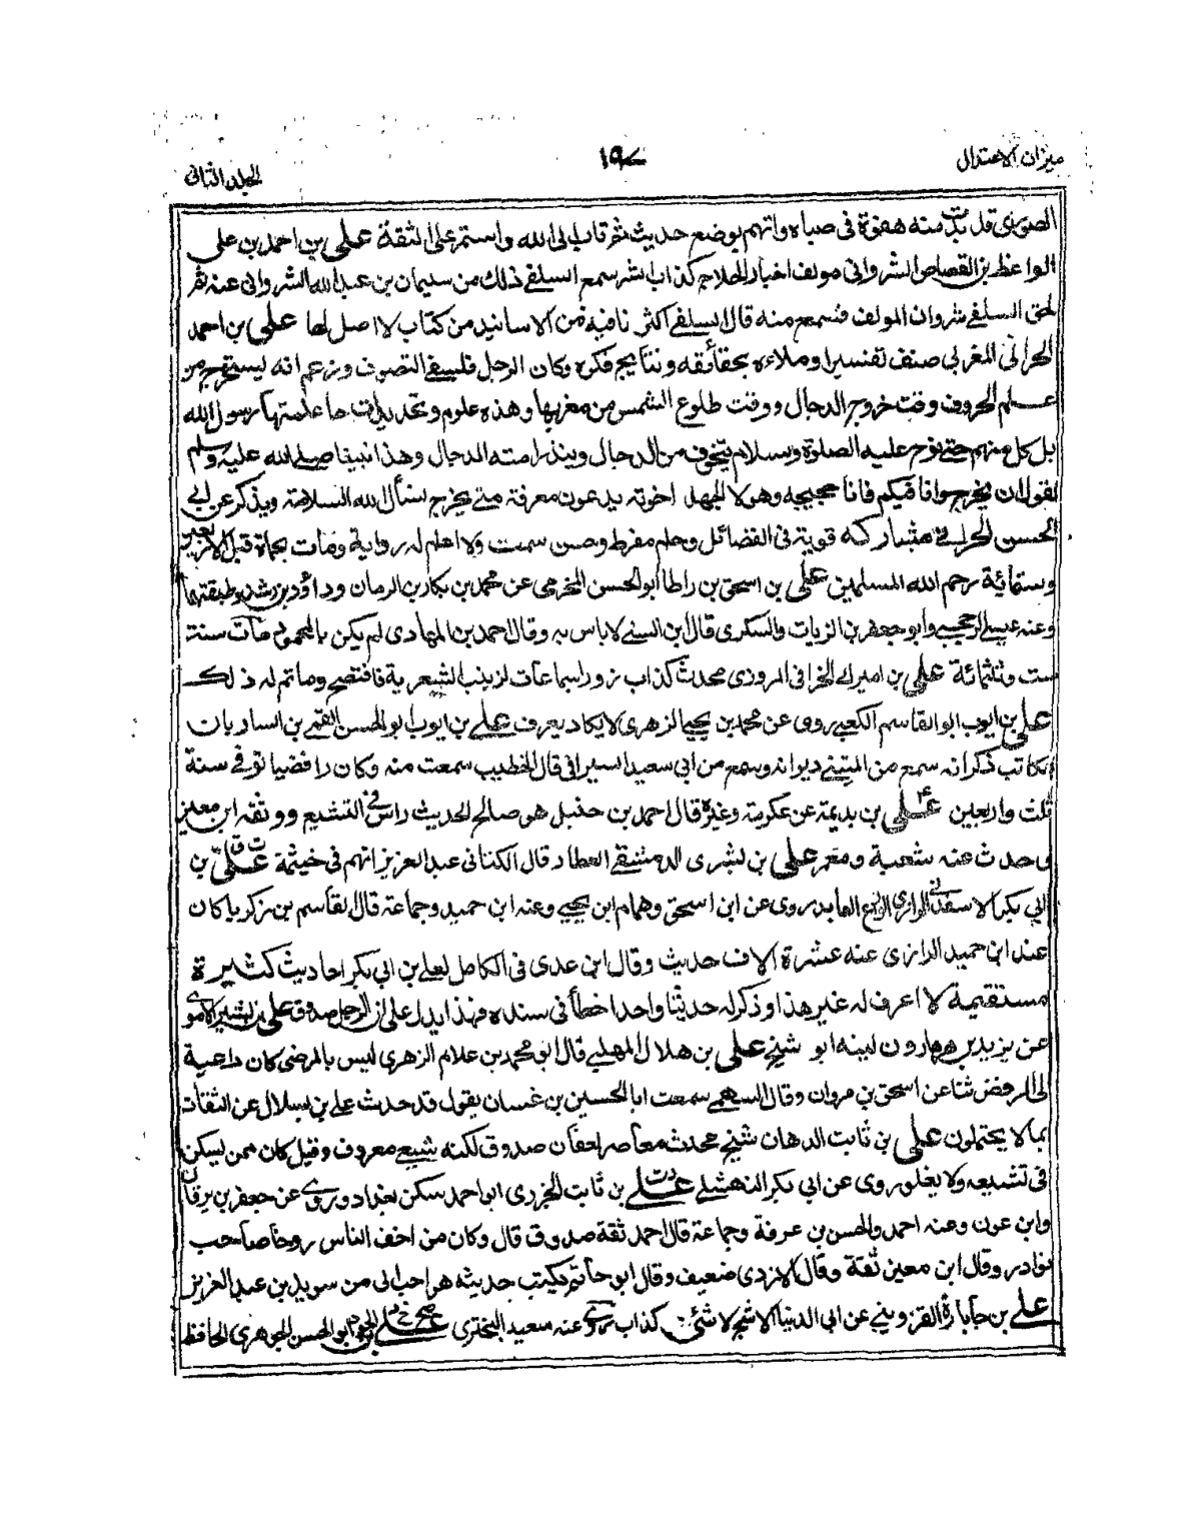 ميزان الاعتدال
١٩٧
الجلد الثاني
الصوري قد بدت منه هفوة في صباه واتهم بوضع حديث ثم تاب الى الله واستمر على الثقة علي بن احمد بن علي
الواعظ بن القصاص الشرواني مولف اخبار الحلاج كذاب اشر سمع السلفي ذلك من سليمان بن عبد الله الشرواني عنه ثم
لحق السلفي بشروان المولف فسمع منه قال السلفي اكثر ما فيه من الاسانيد من كتاب لا اصل لها علي بن احمد
الحرالي المغربي صنف تفسيرا وملاءه بحقائقه ونتايج فكره وكان الرجل فلسفي التصوف وزعم انه يستخرج من
علم الحروف وقت خروج الدجال ووقت طلوع الشمس من مغربها وهذه علوم وتحديدات ما علمتها رسول الله
بل كل منهم حتى نوح عليه الصلوة وسلام يتخوف من الدجال وينذر امته الدجال وهذا نبينا صلى الله عليه وسلم
يقول ان يخرج وانا فيكم فانا حجيجه وهولا الجهلة اخوته يدعون معرفة متى يخرج نسأل الله السلامة ويذكر عن ابي
الحسن الحرالي مشاركة قوية في الفضائل وحلم مفرط وحسن سمت ولا اعلم له رواية ومات بحماة قبل الاربعين
وستمائة رحم الله المسلمين علي بن اسحق بن راطا ابو الحسن المخرمي عن محمد بن بكار بن الريان وداؤد بن رشيد وطبقتهما
وعنه عيسى الرخجي وابو جعفر بن الزيات والسكري قال ابن السني لا باس به وقال احمد بن المهادي لم يكن بالمحمود مات سنة
ست وثلثمائة علي بن اميرك الخرافي المروزي محدث كذاب زور سماعات لزينب الشعرية فافتضح وما تم له ذلك
علي بن ايوب ابو القاسم الكعبي روى عن محمد بن يحيى الزهري لا يكاد يعرف علي بن ايوب ابو الحسن القمي بن الساربان
الكاتب ذكر انه سمع من المتنبي ديوانه وسمع من ابي سعيد السيرافي قال الخطيب سمعت منه وكان رافضيا توفي سنة
ثلث واربعين علي بن بذيمة عن عكرمة وغيره قال احمد بن حنبل هو صالح الحديث راس في التشيع ووثقه ابن معين
وحدث عنه شعبة ومعمر علي بن بشرى الدمشقي العطار قال الكناني عبد العزيز اتهم في خيثمة علي بن
ابي بكر الاسفذني الرازي العابد روى عن ابن اسحق وهمام ابن يحيى وعنه ابن حميد وجماعة قال بقاسم بن زكريا كان
عند ابن حميد الرازي عنه عشرة الاف حديث وقال ابن عدي في الكامل لعلي بن ابي بكر احاديث كثيرة
مستقيمة لا اعرف له غير هذا وذكر له حديثا واحدا خطأ في سنده فهذا يدل على ان الرجل صدوق علي بن بشير الاموي
عن يزيد بن هارون لينه ابو شيخ علي بن هلال المهلبي قال ابو محمد بن غلام الزهري ليس بالمرضي كان داعية
الى الرفض ثنا عن اسحق بن مروان وقال السهمي سمعت ابا الحسين بن غسان يقول قد حدث علي بن بسلال عن الثقات
بما لا يحتملون علي بن ثابت الدهان شيخ محدث معاصر لعفان صدوق لكنه شيعي معروف وقيل كان ممن يسكن
في تشيعه ولا يغلو روى عن ابي بكر النهشلي علي بن ثابت الجزري ابو احمد سكن بغداد وروى عن جعفر بن برقان
وابن عون وعنه احمد والحسن بن عرفة وجماعة قال احمد ثقة صدوق قال وكان من اخف الناس روحا صاحب
نوادر وقال ابن معين ثقة وقال الازدي ضعيف وقال ابو حاتم يكتب حديثه هو احب الى من سويد بن عبد العزيز
علي بن جابارة القزويني عن ابي الدنيا الاشج لا شئ كذاب وعنه سعيد البختري علي بن الجعد ابو الحسن الجوهري الحافظ